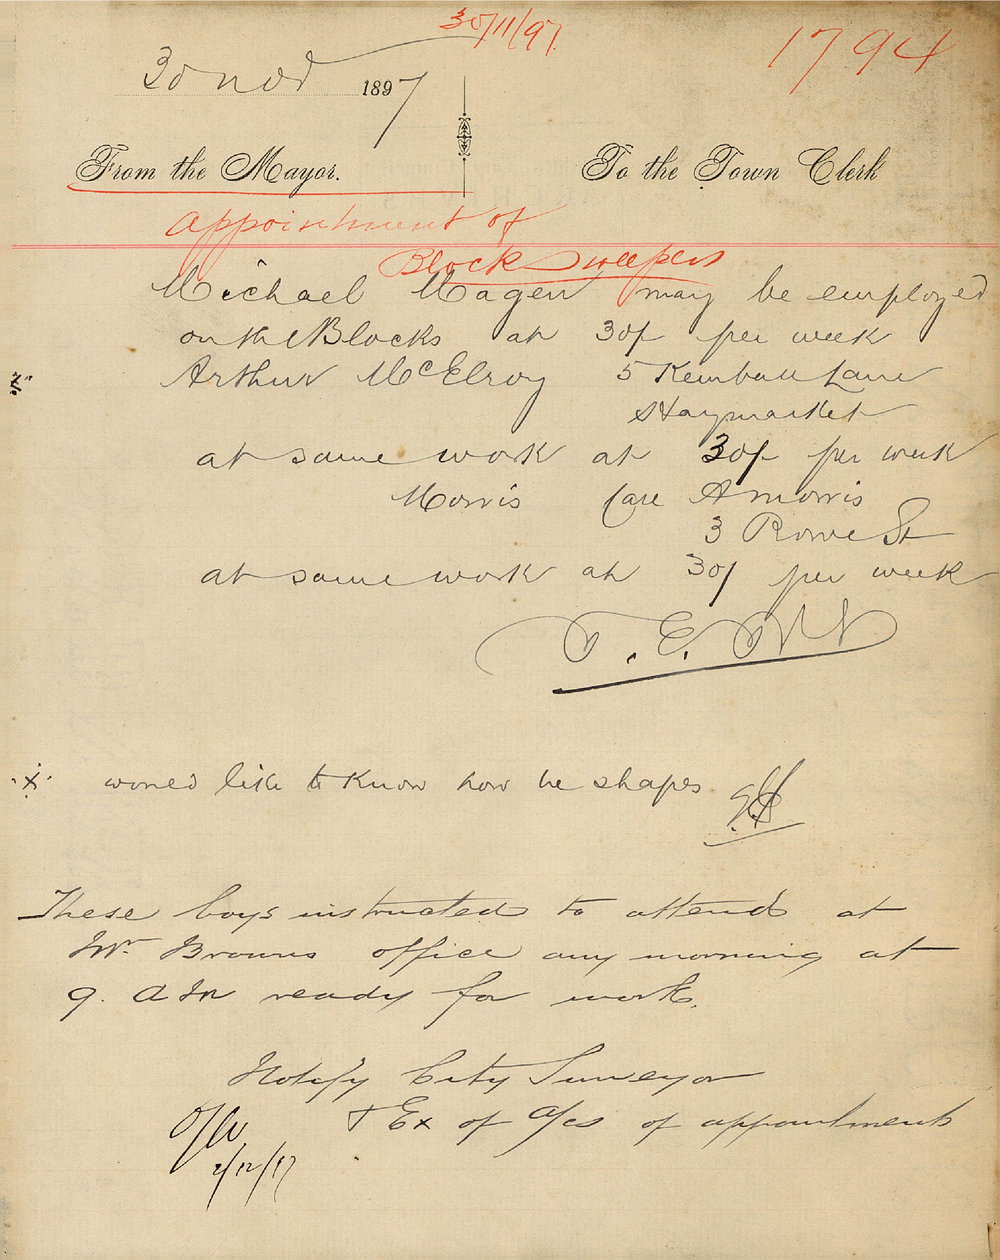 30/11/97.
1794
30 Nov 1897
From the Mayor. To the Town Clerk
Appointment of
Block Sweepers
Michael Magen may be employed
on the Blocks at 30/- per week
"x" Arthur McElroy 5 Kemball Lane
Haymarket
at same work at 30/- per week
Morris Care A Morris
3 Rowe St
at same work at 30/- per week
x would like to know how he shapes.
These boys instructed to attend at
Mr. Browns office any morning at
9. AM ready for work.
Notify City Surveyor
+ Ex of A/cs of appointments
2/12/97